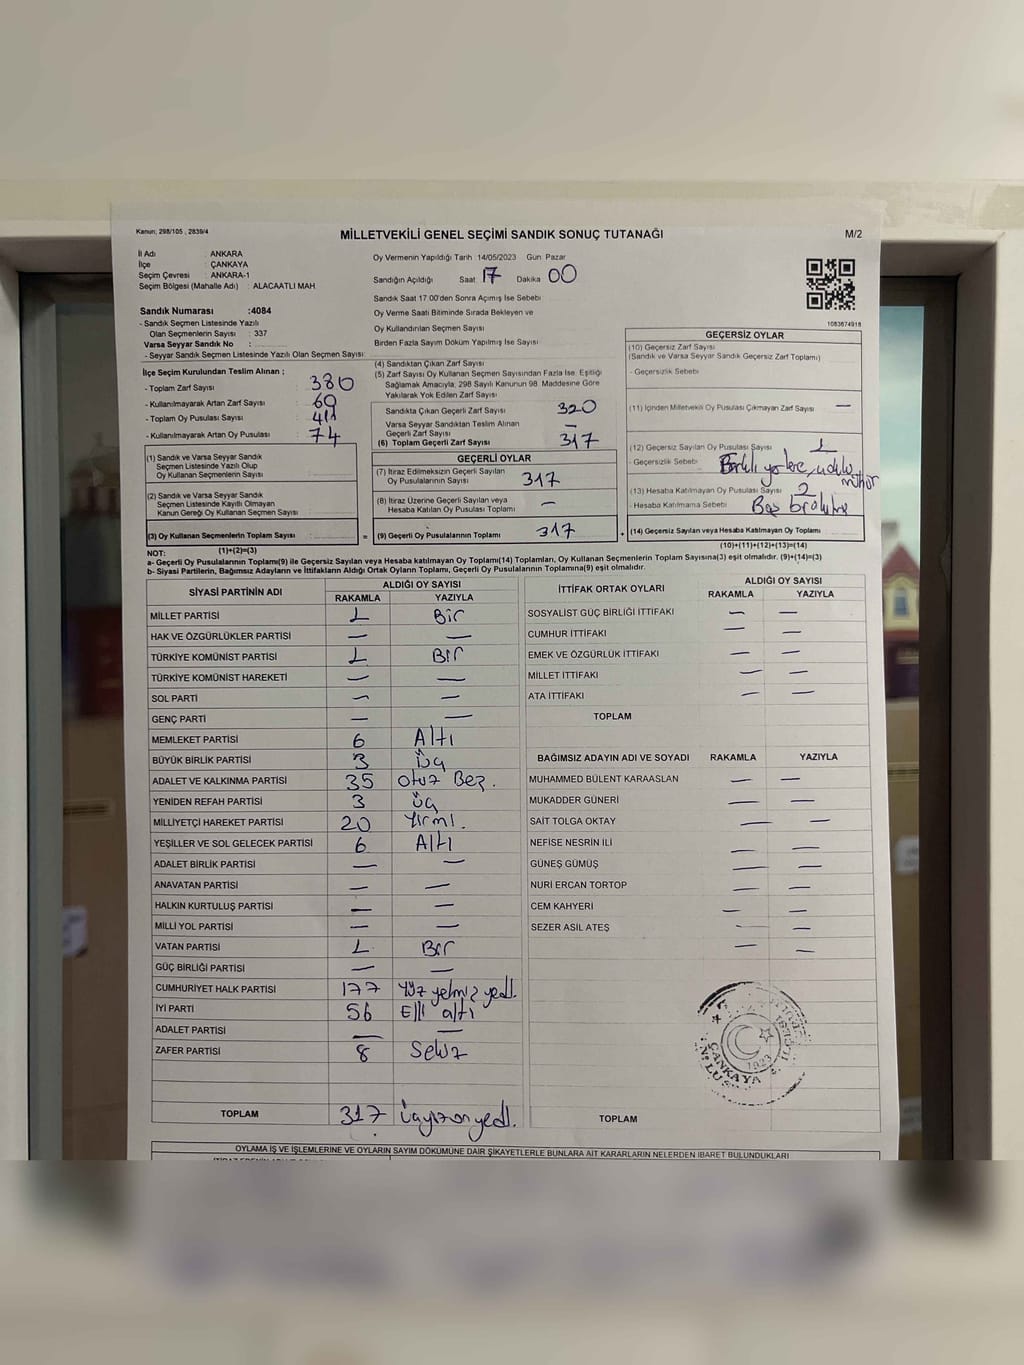 Kanun; 298/105 , 2839/4
MİLLETVEKİLİ GENEL SEÇİMİ SANDIK SONUÇ TUTANAĞI
M/2
İl Adı : ANKARA
İlçe : ÇANKAYA
Seçim Çevresi : ANKARA-1
Seçim Bölgesi (Mahalle Adı) : ALACAATLI MAH.
Sandık Numarası :4084
- Sandık Seçmen Listesinde Yazılı
Olan Seçmenlerin Sayısı : 337
Varsa Seyyar Sandık No :
- Seyyar Sandık Seçmen Listesinde Yazılı Olan Seçmen Sayısı
Oy Vermenin Yapıldığı Tarih : 14/05/2023 Gün: Pazar
Sandığın Açıldığı Saat 17 Dakika 00
Sandık Saat 17.00'den Sonra Açımış İse Sebebi
Oy Verme Saati Bitiminde Sırada Bekleyen ve
Oy Kullandırılan Seçmen Sayısı
Birden Fazla Sayım Döküm Yapılmış İse Sayısı
1083674918
İlçe Seçim Kurulundan Teslim Alınan ;
- Toplam Zarf Sayısı 380
- Kullanılmayarak Artan Zarf Sayısı 60
- Toplam Oy Pusulası Sayısı
- Kullanılmayarak Artan Oy Pusulası 74
(1) Sandık ve Varsa Seyyar Sandık
Seçmen Listesinde Yazılı Olup
Oy Kullanan Seçmenlerin Sayısı
(2) Sandık ve Varsa Seyyar Sandık
Seçmen Listesinde Kayıtlı Olmayan
Kanun Gereği Oy Kullanan Seçmen Sayısı
(3) Oy Kullanan Seçmenlerin Toplam Sayısı =
(1)+(2)=(3)
(4) Sandıktan Çıkan Zarf Sayısı
(5) Zarf Sayısı Oy Kullanan Seçmen Sayısından Fazla İse, Eşitliği
Sağlamak Amacıyla, 298 Sayılı Kanunun 98. Maddesine Göre
Yakılarak Yok Edilen Zarf Sayısı
Sandıkta Çıkan Geçerli Zarf Sayısı 320
Varsa Seyyar Sandıktan Teslim Alınan
Geçerli Zarf Sayısı —
(6) Toplam Geçerli Zarf Sayısı 317
GEÇERLİ OYLAR
(7) İtiraz Edilmeksizin Geçerli Sayılan
Oy Pusulalarının Sayısı 317
(8) İtiraz Üzerine Geçerli Sayılan veya
Hesaba Katılan Oy Pusulaları Toplamı —
(9) Geçerli Oy Pusulalarının Toplamı 317 +
GEÇERSİZ OYLAR
(10) Geçersiz Zarf Sayısı
(Sandık ve Varsa Seyyar Sandık Geçersiz Zarf Toplamı)
- Geçersizlik Sebebi
(11) İçinden Milletvekili Oy Pusulası Çıkmayan Zarf Sayısı —
(12) Geçersiz Sayılan Oy Pusulası Sayısı 1
- Geçersizlik Sebebi
(13) Hesaba Katılmayan Oy Pusulası Sayısı 2
- Hesaba Katılmama Sebebi Boş
(14) Geçersiz Sayılan veya Hesaba Katılmayan Oy Toplamı
(10)+(11)+(12)+(13)=(14)
NOT:
a- Geçerli Oy Pusulalarının Toplamı(9) ile Geçersiz Sayılan veya Hesaba katılmayan Oy Toplamı(14) Toplamları, Oy Kullanan Seçmenlerin Toplam Sayısına(3) eşit olmalıdır. (9)+(14)=(3)
b- Siyasi Partilerin, Bağımsız Adayların ve İttifakların Aldığı Ortak Oyların Toplamı, Geçerli Oy Pusulalarının Toplamına(9) eşit olmalıdır.
SİYASİ PARTİNİN ADI ALDIĞI OY SAYISI
RAKAMLA YAZIYLA
MİLLET PARTİSİ 1 Bir
HAK VE ÖZGÜRLÜKLER PARTİSİ — —
TÜRKİYE KOMÜNİST PARTİSİ 1 Bir
TÜRKİYE KOMÜNİST HAREKETİ — —
SOL PARTİ — —
GENÇ PARTİ — —
MEMLEKET PARTİSİ 6 Altı
BÜYÜK BİRLİK PARTİSİ 3 Üç
ADALET VE KALKINMA PARTİSİ 35 otuz Beş.
YENİDEN REFAH PARTİSİ 3 üç
MİLLİYETÇİ HAREKET PARTİSİ 20 Yirmi.
YEŞİLLER VE SOL GELECEK PARTİSİ 6 Altı
ADALET BİRLİK PARTİSİ — —
ANAVATAN PARTİSİ — —
HALKIN KURTULUŞ PARTİSİ — —
MİLLİ YOL PARTİSİ — —
VATAN PARTİSİ 1 Bir
GÜÇ BİRLİĞİ PARTİSİ — —
CUMHURİYET HALK PARTİSİ 177 yüz yetmiş yedi.
İYİ PARTİ 56 Elli altı
ADALET PARTİSİ — —
ZAFER PARTİSİ 8 Sekiz
TOPLAM 317 üçyüzonyedi.
İTTİFAK ORTAK OYLARI ALDIĞI OY SAYISI
RAKAMLA YAZIYLA
SOSYALİST GÜÇ BİRLİĞİ İTTİFAKI — —
CUMHUR İTTİFAKI — —
EMEK VE ÖZGÜRLÜK İTTİFAKI — —
MİLLET İTTİFAKI — —
ATA İTTİFAKI — —
TOPLAM
BAĞIMSIZ ADAYIN ADI VE SOYADI RAKAMLA YAZIYLA
MUHAMMED BÜLENT KARAASLAN — —
MUKADDER GÜNERİ — —
SAİT TOLGA OKTAY — —
NEFİSE NESRİN İLİ — —
GÜNEŞ GÜMÜŞ — —
NURİ ERCAN TORTOP — —
CEM KAHYERİ — —
SEZER ASIL ATEŞ — —
— —
ÇANKAYA
1923
TOPLAM
OYLAMA İŞ VE İŞLEMLERİNE VE OYLARIN SAYIM DÖKÜMÜNE DAİR ŞİKAYETLERLE BUNLARA AİT KARARLARIN NELERDEN İBARET BULUNDUKLARI